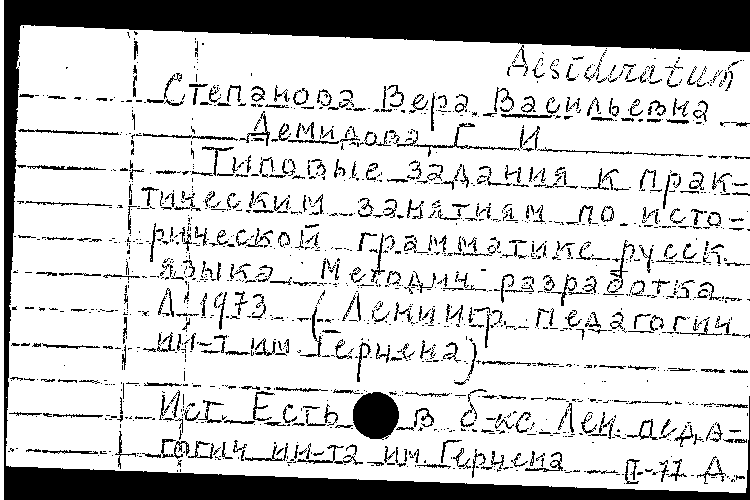 Desideratum
Степанова Вера Васильевна
Демидова, Г. И.
Типовые задания к прак-
тическим занятиям по исто-
рической грамматике русск.
языка. Методич. разработка
Л. 1973 (Ленингр. педагогич
ин-т им. Герцена)
Ист. Есть в б-ке Лен. педа-
гогич ин-та им. Герцена II-77 Д.